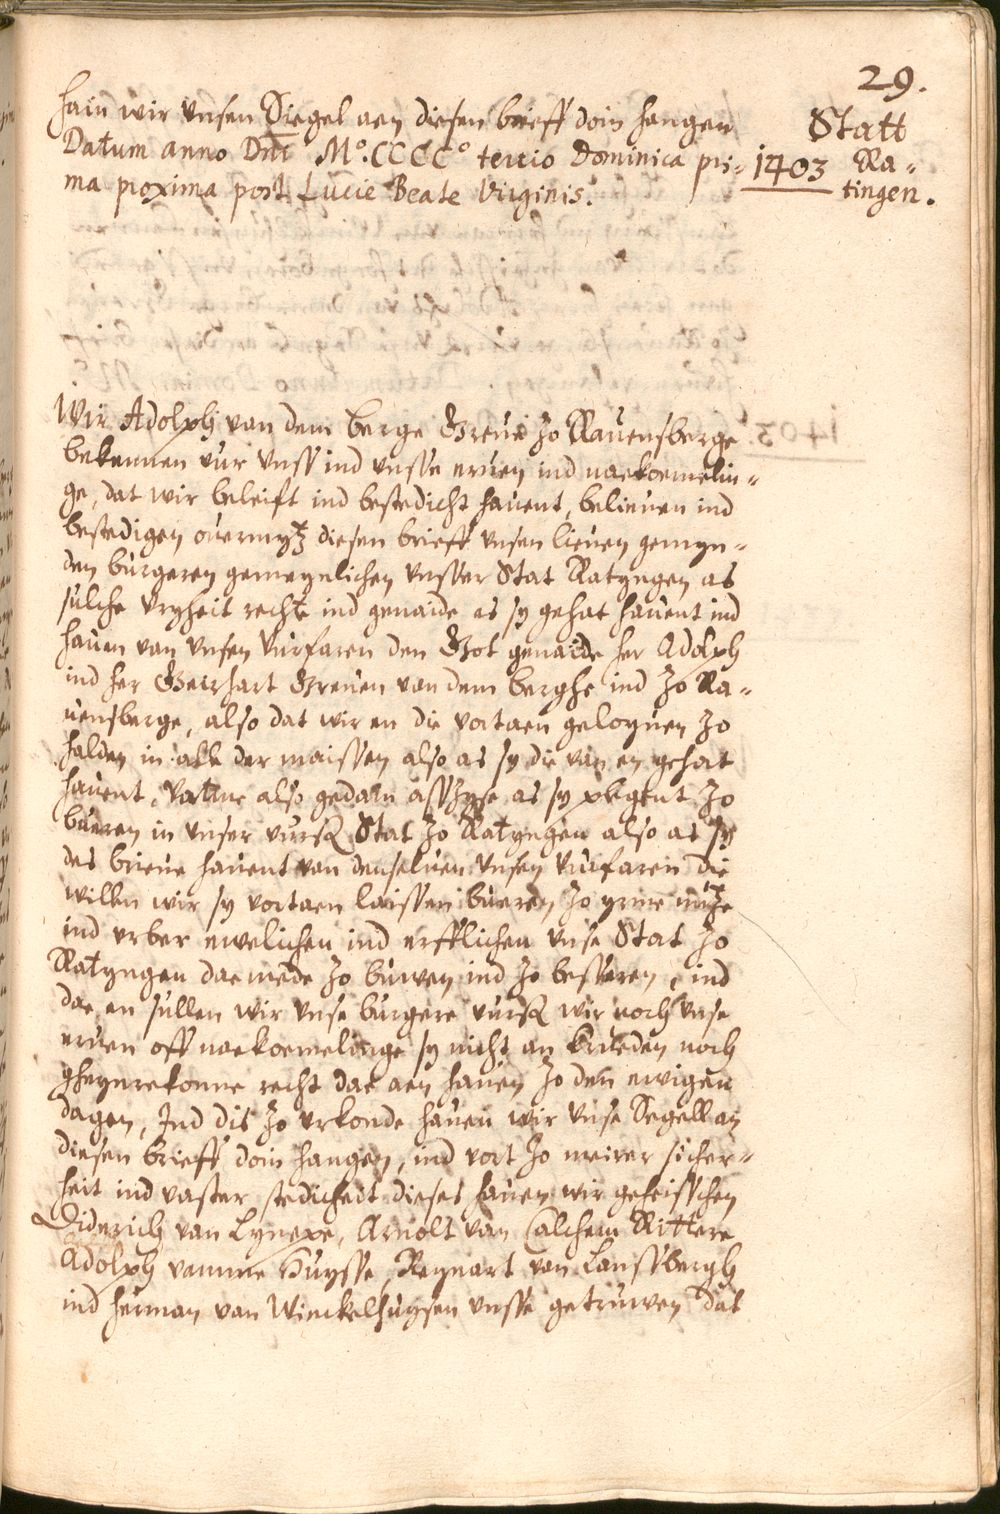 29.
hain wir unsen Siegel aen diesen brieff doin hangen
Datum anno Dni M°. CCCC° tertio Dominica pri-
ma proxima post Lucie Beate Virginis.
1403
Statt
Ra-
tingen.
Wir Adolph van dem berge Greue zo Rauensberge
bekennen vur vnss ind vnsse eruen ind naekoemelin-
ge, dat wir beleift ind bestedicht hauent, belieuen ind
bestedigen ouermytz diesen brieff vnsen lieuen gemyn-
den burgeren gemeynlichen vnsser Stat Ratyngen as
sulche vryheit recht ind genaide as sy gehat hauent ind
hauen van vnsen vurfaren den Got genaide her Adolph
ind her Gerhart Greuen van dem berghe ind zo Ra-
uensberge, also dat wir en die vortaen geloyuen zo
halden in all der maissen also as sy die van en gehat
hauent, vatme also gedain asshyse as sy plegent zo
bueren in vnser vursz Stat zo Ratyngen also as sy
des brieue hauent van denseluen vnsen vurfaren die
willen wir sy vortaen laissen bueren zo yrme nutze
ind vrber ewelichen ind erfflichen vnse Stat zo
Ratyngen daemede zo buwen ind zo besseren, ind
dae en sullen wir vnse burgere vursz wir noch vnse
eruen off naekoemelinge sy nicht an krueden noch
gheynrekonne recht dae aen hauen zo den ewigen
dagen, Ind dis zo vrkonde hauen wir vnse Segell an
diesen brieff doin hangen, ind vort zo meirer sicher-
heit ind vaster stedicheit dieses hauen wir geheisschen
Diderich van Lynepe, Arnolt van Calchem Rittere
Adolph vamme Huysse, Reynart van Lanssbergh
ind herman van Winckelhuysen vnsse getruwen dat